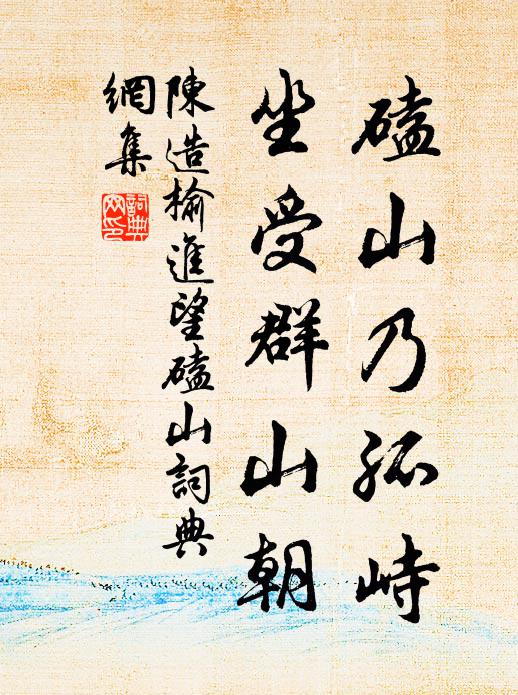 磕山乃孤峙
坐受群山朝
陳造榆進望磕山詞典
網集
詞典网印